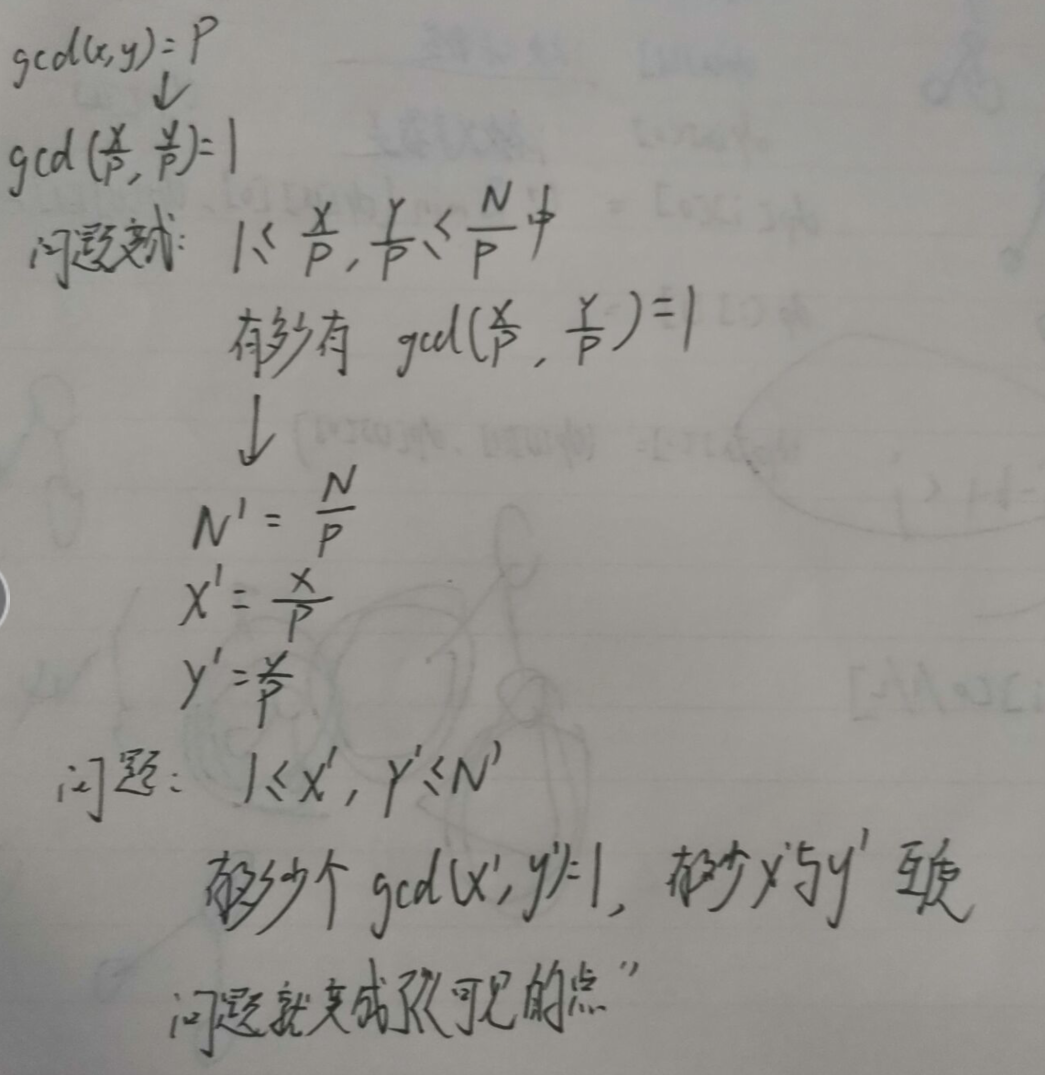 gcd(x,y)=P
↓
gcd(x/P, y/P)=1
问题变成: 1≤ x/P, y/P ≤ N/P 中
有多少有 gcd(x/P, y/P)=1
↓
N' = N/P
x' = x/P
y' = y/P
问题: 1≤x', y'≤N'
有多少个 gcd(x',y')=1, 有多少x'与y' 互质
问题就变成了“可见的点”